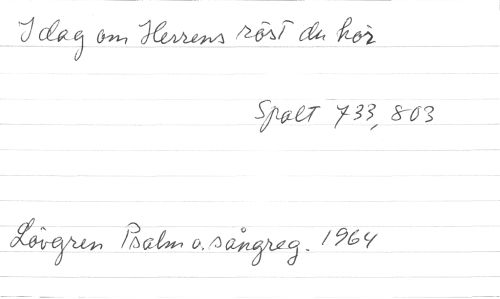 Idag om Herrens röst du hör
Spalt 733, 803
Lövgren Psalm o. sångreg. 1964